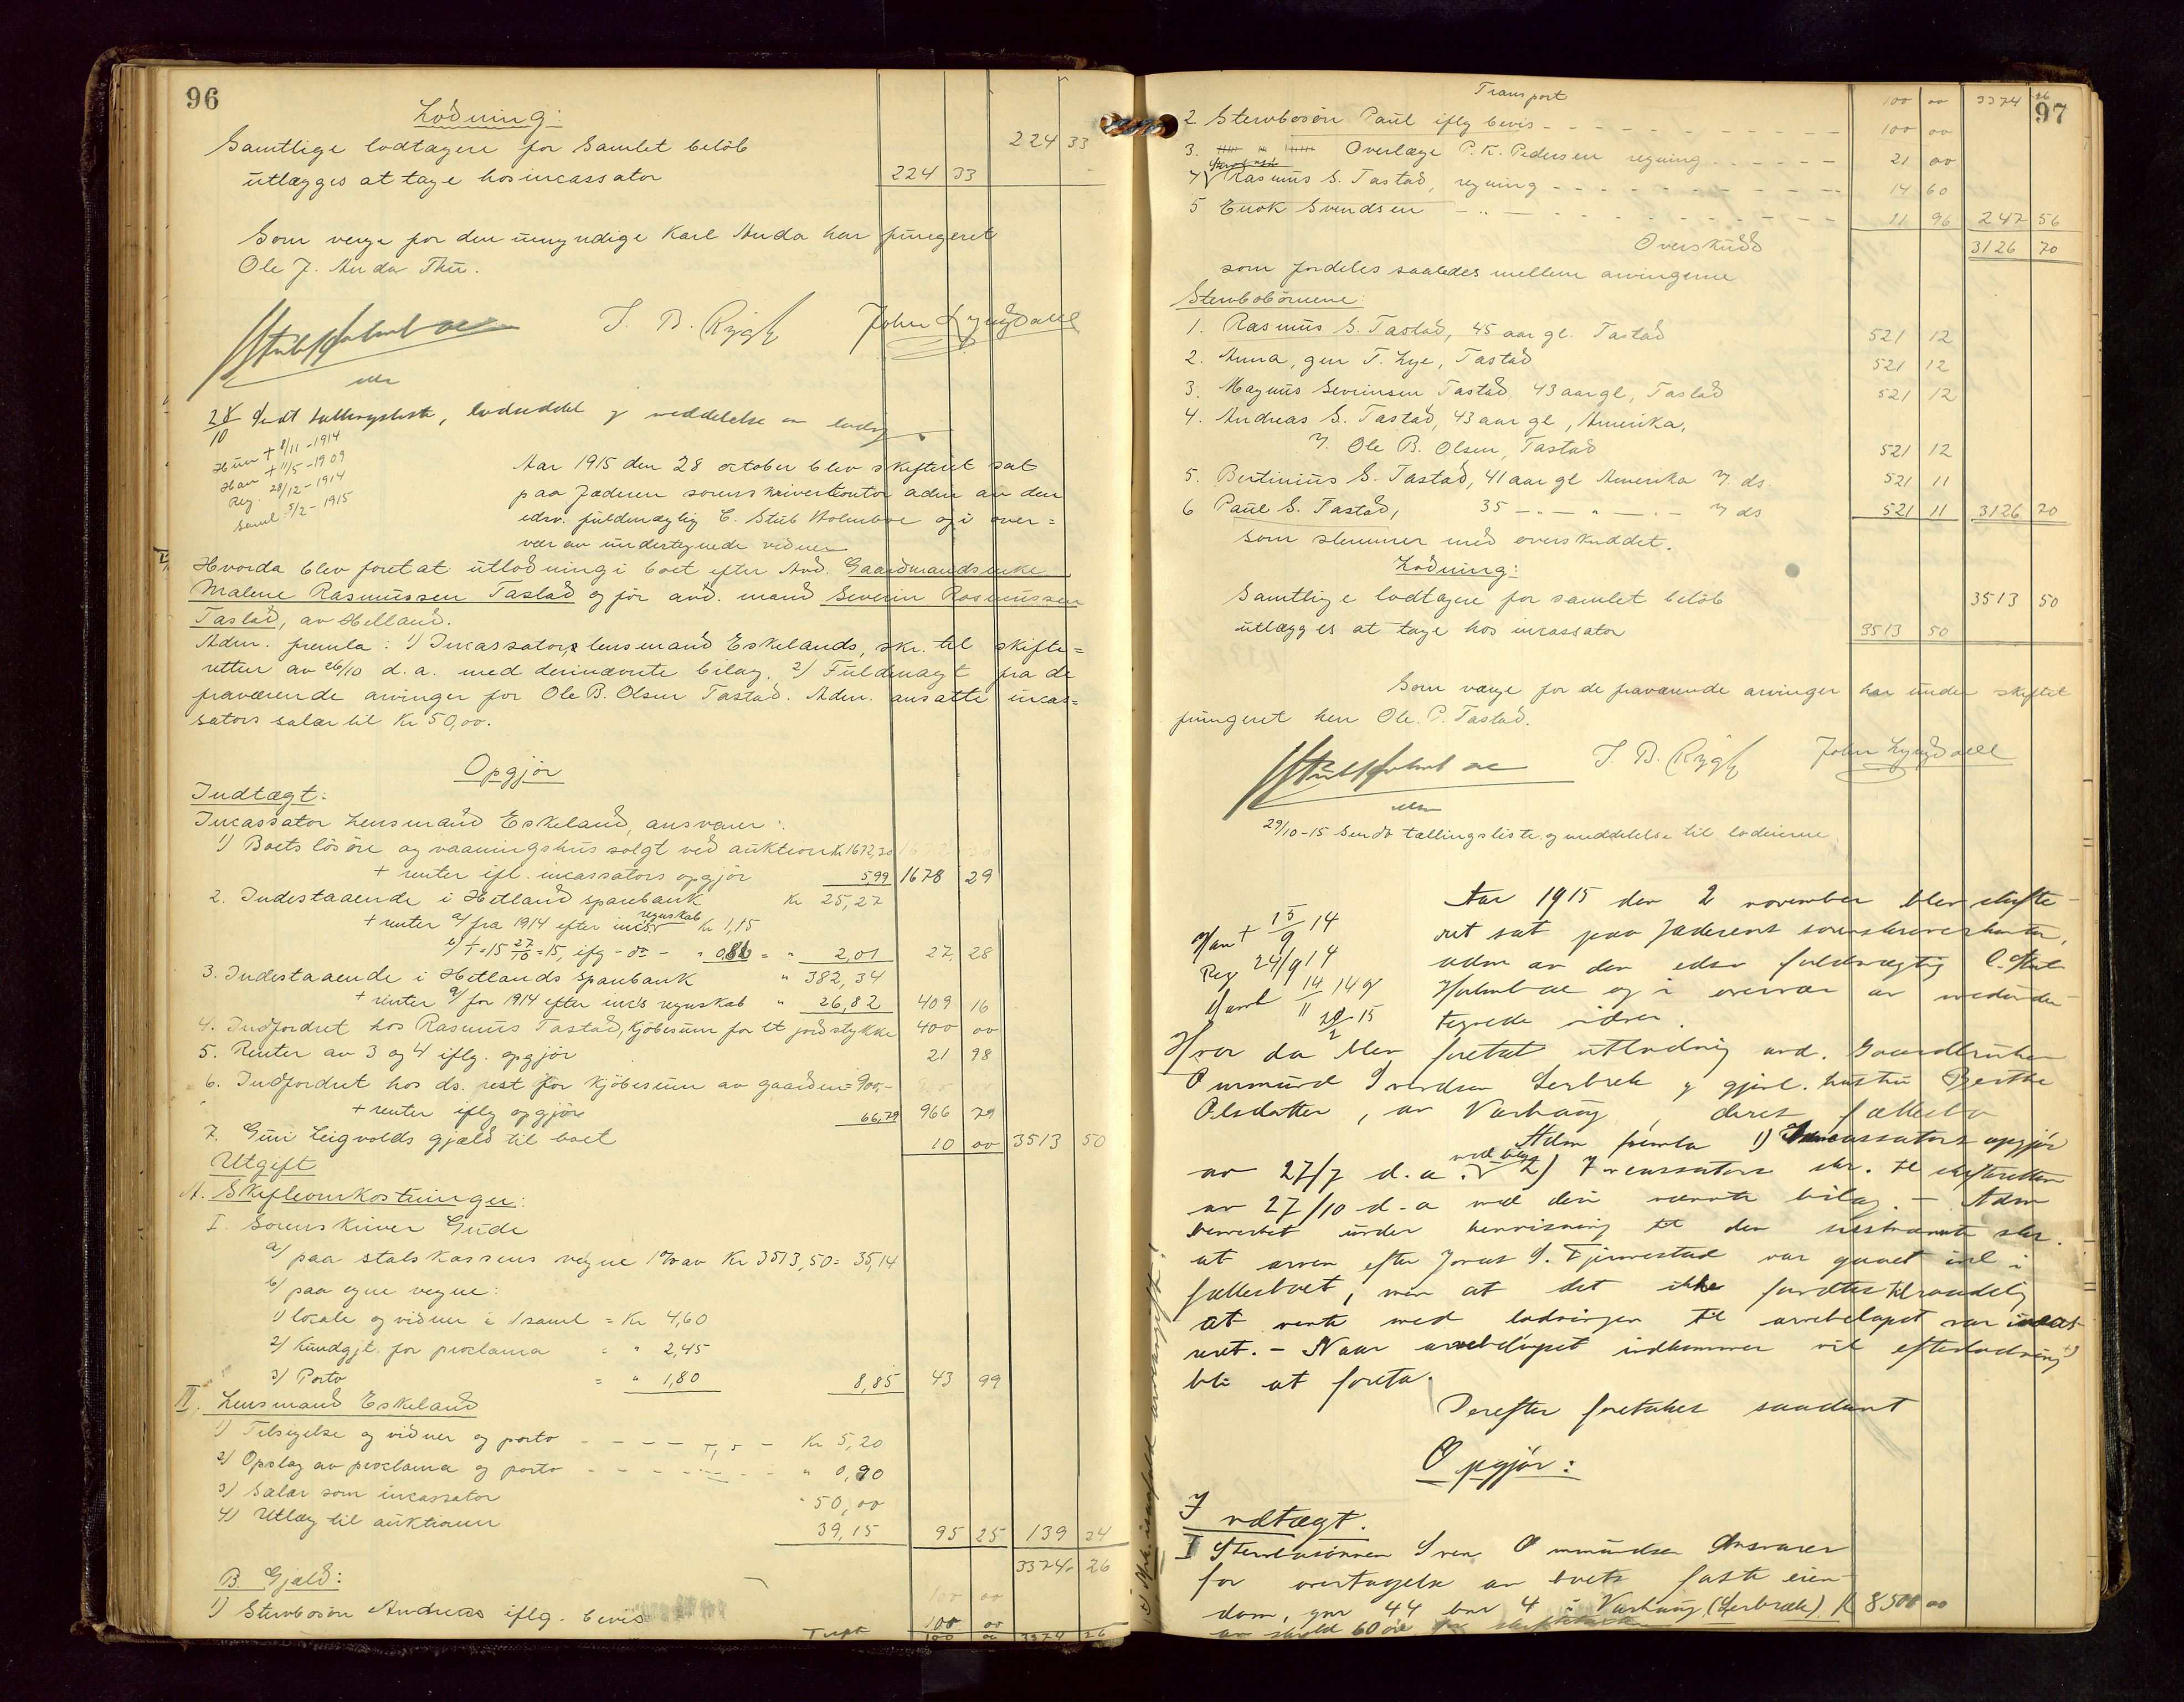 96
Lodning:
Samtlige lodtagere for samlet beløb 224 33
utlægges at tage hos incassator 224 33
Som verge for den umyndige Karl Anda har fungeret
Ole J. Anda Thu.
T. B. Rygh John Lyngdahl
28/10 Sendt tællingsliste, lodseddel og meddelelse om lodng.
Hun + 8/11-1914
Han + 11/5-1909
Reg. 28/12-1914
Saml. 5/2-1915
Aar 1915 den 28 october blev skifteret sat
paa Jæderen sorenskriverkontor adm av den
edsv. fuldmægtig C. Stub Holmboe og i over=
vær av undertegnede vidner
Hvorda blev foretat utlodning i boet efter Avd. Gaardmandsenke
Malene Rasmussen Tastad og før avd. mand Severin Rasmussen
Tastad, av Hetland.
Adm. fremla: 1) Incassators lensmand Eskelands, skr. til skifte=
retten av 26/10 d. a. med derinævnte bilag. 2) Fuldmagt fra de
fraværende arvinger for Ole B. Olsen Tastad. Adm. ansatte incas=
sators salær til Kr 50,00.
Opgjør
Indtægt:
Incassator Lensmand Eskeland, ansvarer:
1) Boets løsøre og vaaningshus solgt ved auktion Kr 1672,30
+ renter ifl. incassators opgjør 5,99 1678 29
2. Indestaaende i Hetland sparebank Kr 25,27
+ renter a/ fra 1914 efter inc's regnskab Kr 1,15
b/ 1/1-15 27/10-15, ifg - do - " 0,86 = " 2,01 27, 28
3. Indestaaende i Hetlands Sparebank " 382,34
+ renter a/ for 1914 efter inc's regnskab " 26,82 409 16
4. Indfordret hos Rasmus Tastad, kjøbesum for et jordstykke 400 00
5. Renter av 3 og 4 iflg. opgjør 21 98
6. Indfordret hos ds. rest for kjøbesum av gaarden = 900,-
+ renter iflg opgjør 66,79 966 79
7. Guri Leigvolds gjæld til boet 10 00 3513 50
Utgift
A. Skifteomkostninger:
I. Sorenskriver Gude
a/ paa statskassens vegne 1% av Kr 3513,50 = 35,14
b/ paa egne vegne:
1) locale og vidner i 1 saml = Kr 4,60
2) Kundgjt. for proclama = " 2,45
3) Porto = " 1,80 8,85 43 99
II. Lensmand Eskeland
1) Tilsigelse og vidner og porto Kr 5,20
2) Opslag av proclama og porto " 0,90
3) Salær som incassator " 50,00
4) Utlæg til auktionen 39,15 95 25 139 24
3374 26
B. Gjæld:
1) Stervbosøn Andreas iflg. bevis 100 00
Trspt 100 00 3374 26
97
Transport 100 00 3374 26
2. Stervbosøn Paul iflg bevis 100 00
3. Overlæge P. K. Pedersen regning 21 00
4) Rasmus S. Tastad, regning 14 60
5 Enok Svendsen - " - 11 96 247 56
Overskudd 3126 70
som fordeles saaledes mellem arvingerne
Stervbobørnene:
1. Rasmus S. Tastad, 45 aar gl. Tastad 521 12
2. Anna, gm T. Lye, Tastad 521 12
3. Magnus Severinsen Tastad 43 aar gl, Tastad 521 12
4. Andreas S. Tastad, 43 aar gl, Amerika,
v/ Ole B. Olsen, Tastad 521 12
5. Bertinius S. Tastad, 41 aar gl Amerika v/ ds. 521 11
6 Paul S. Tastad, 35 - " - " - " - v/ ds 521 11 3126 70
som stemmer med overskuddet.
Lodning:
Samtlige lodtagere for samlet beløb 3513 50
utlægges at tage hos incassator 3513 50
Som værge for de fraværende arvinger har under skiftet
fungeret herr Ole. P. Tastad.
T. B. Rygh John Lyngdahl
29/10-15 Sendt tællingsliste og meddelelse til lodeierne
Han + 15/9 14
Reg 24/9 14
Saml 14/11 14 og
20/2 15
Aar 1915 den 2 november blev skifte-
ret sat paa Jæderens sorenskriverkontor,
adm av den edsv fuldmægtig C. Stub
Holmboe og i overvær av medunder-
tegnede vidner.
Hvor da blev foretat utlodning avd. Gaardbruker
Ommund Svendsen Lerbrek og gjenl. hustru Berthe
Olsdatter, av Varhaug, deres fællesbo
Adm fremla 1) Incassators opgjør
av 27/7 d. a. med bilag 2) Incassators skr. til skifteretten
av 27/10 d-a med deri nævnte bilag. - Adm
bemerket under henvisning til den sistnævnte skr.
at arven efter Jonas S. Fjermestad var gaaet ind i
fællesboet, men at det ikke fandtes tilraadelig
at vente med lodningen til arvebeløpet var incas-
sert. - Naar arvebeløpet indkommer vil efterlodning +)
bli at foreta.
Derefter foretokes saadant
Opgjør:
Indtægt.
I Stervbosønnen Sven Ommundsen Ansvarer
for overtagelse av boets faste eien-
dom, gnr 44 bnr 4 i Varhaug (Lerbrek) K 8500 00
av skyld 60 øre